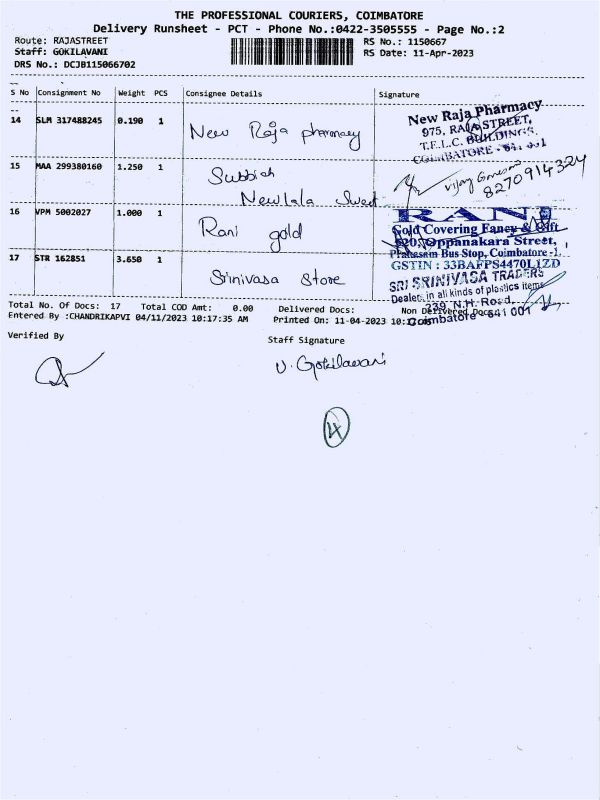 THE PROFESSIONAL COURIERS, COIMBATORE
Delivery Runsheet - PCT - Phone No.:0422-3505555 - Page No.:2
Route: RAJASTREET
RS No.: 1150667
Staff: GOKILAVANI
RS Date: 11-Apr-2023
DRS No.: DCJB115066702
S No Consignment No Weight PCS Consignee Details Signature
14 SLM 317488245 0.190 1 New Raja pharmacy
New Raja Pharmacy
975, RAJA STREET,
T.E.L.C. BUILDINGS
COIMBATORE - 641 001
15 MAA 299380160 1.250 1 Subbiah
Newlala Sweet
8270914324
16 VPM 5002027 1.000 1 Rani gold
RANI
Gold Covering Fancy & Gift
620, Oppanakara Street,
Prakasam Bus Stop, Coimbatore-1.
GSTIN : 33BAFPS4470L1ZD
17 STR 162851 3.650 1 Srinivasa Store
SRI SRINIVASA TRADERS
Dealers in all kinds of plastics items
239, N.H. Road,
Coimbatore - 641 001
Total No. Of Docs: 17 Total COD Amt: 0.00 Delivered Docs: Non Delivered Docs:
Entered By :CHANDRIKAPVI 04/11/2023 10:17:35 AM Printed On: 11-04-2023
Verified By
Staff Signature
V. Gokilavani
4